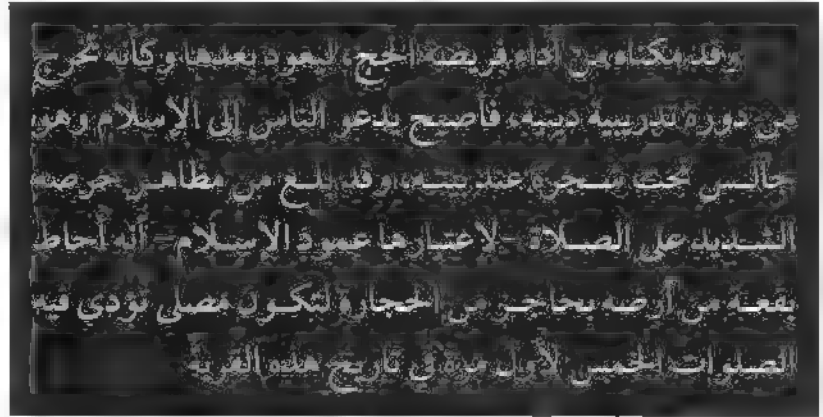 وقد مكناه من أداء فريضة الحج، ليعود بعدها وكأنه تخرج
من دورة تدريبية دينية، فأصبح يدعو الناس إلى الإسلام وهو
جالس تحت شجرة عند بيته، وقد بلغ من مظاهر حرصه
الشديد على الصلاة -لاعتبارها عمود الإسلام- أنه أحاط
بقعة من أرضه بحاجز من الحجارة لتكون مصلى تؤدى فيه
الصلوات الخمس لأول مرة في تاريخ هذه القرية